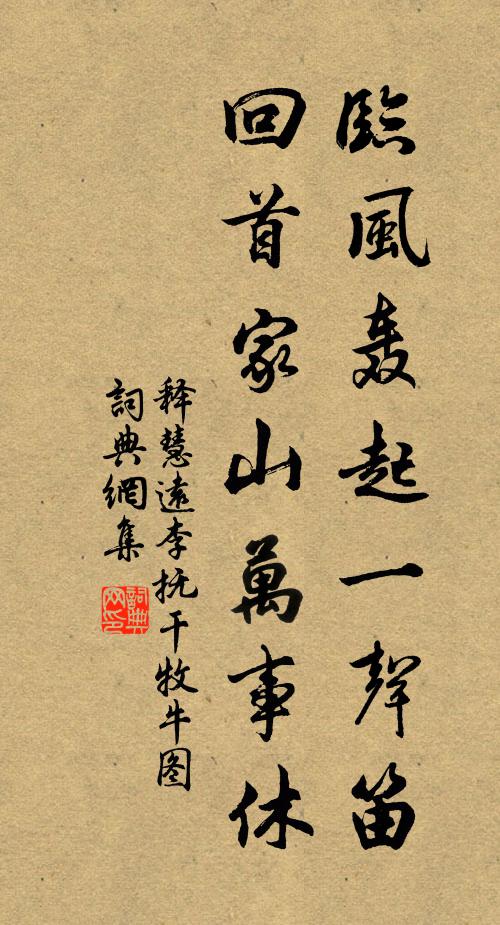 臨風轰起一聲笛
回首家山萬事休
释慧遠李抚干牧牛图
詞典網集
詞典网印